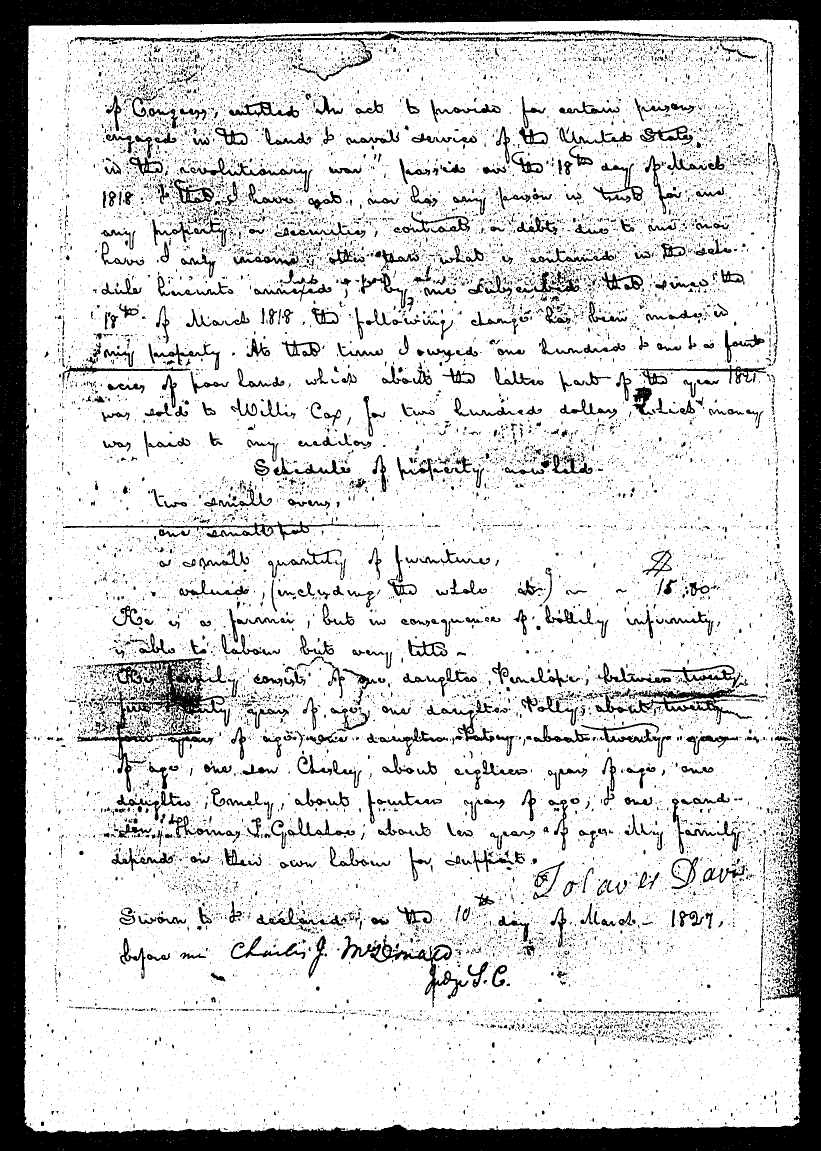 of Congress, entitled "An act to provide for certain persons
engaged in the land & naval service of the United States,
in the revolutionary war" passed on the 18th day of March
1818. & that I have not, nor has any person in trust for me
any property, or securities, contracts, or debts due to me nor
have I any income, other than what is contained in the sche-
dule hereunto annexed, & by me subscribed that since the
18th of March 1818. the following change has been made in
my property. At that time I owned one hundred & one & a fourth
acres of poor land, which about the latter part of the year 1821
was sold to Willis Cox, for two hundred dollars, which money
was paid to my creditors.
Schedule of property now held-
two small ovens,
one small pot,
a small quantity of furniture,
valued, (including the whole at) ~ ~ $ 15.00
He is a farmer, but in consequence of bodily infirmity,
is able to labour but very little ~
His family consists of one, daughter, Penelope, between twenty
five thirty years of age, one daughter Polly, about twenty
four years of age, one daughter Patsey about twenty years
of age, one son Chesley, about eighteen years of age, one
daughter, Emely, about fourteen years of age, & one grand-
son, Thomas J. Gallahoe, about ten years of age. My family
depend on their own labour for support.
Tolaver Davis
Sworn to & declared, on the 10th day of March - 1827,
before me Charles J. McDonald
Judge S. C.